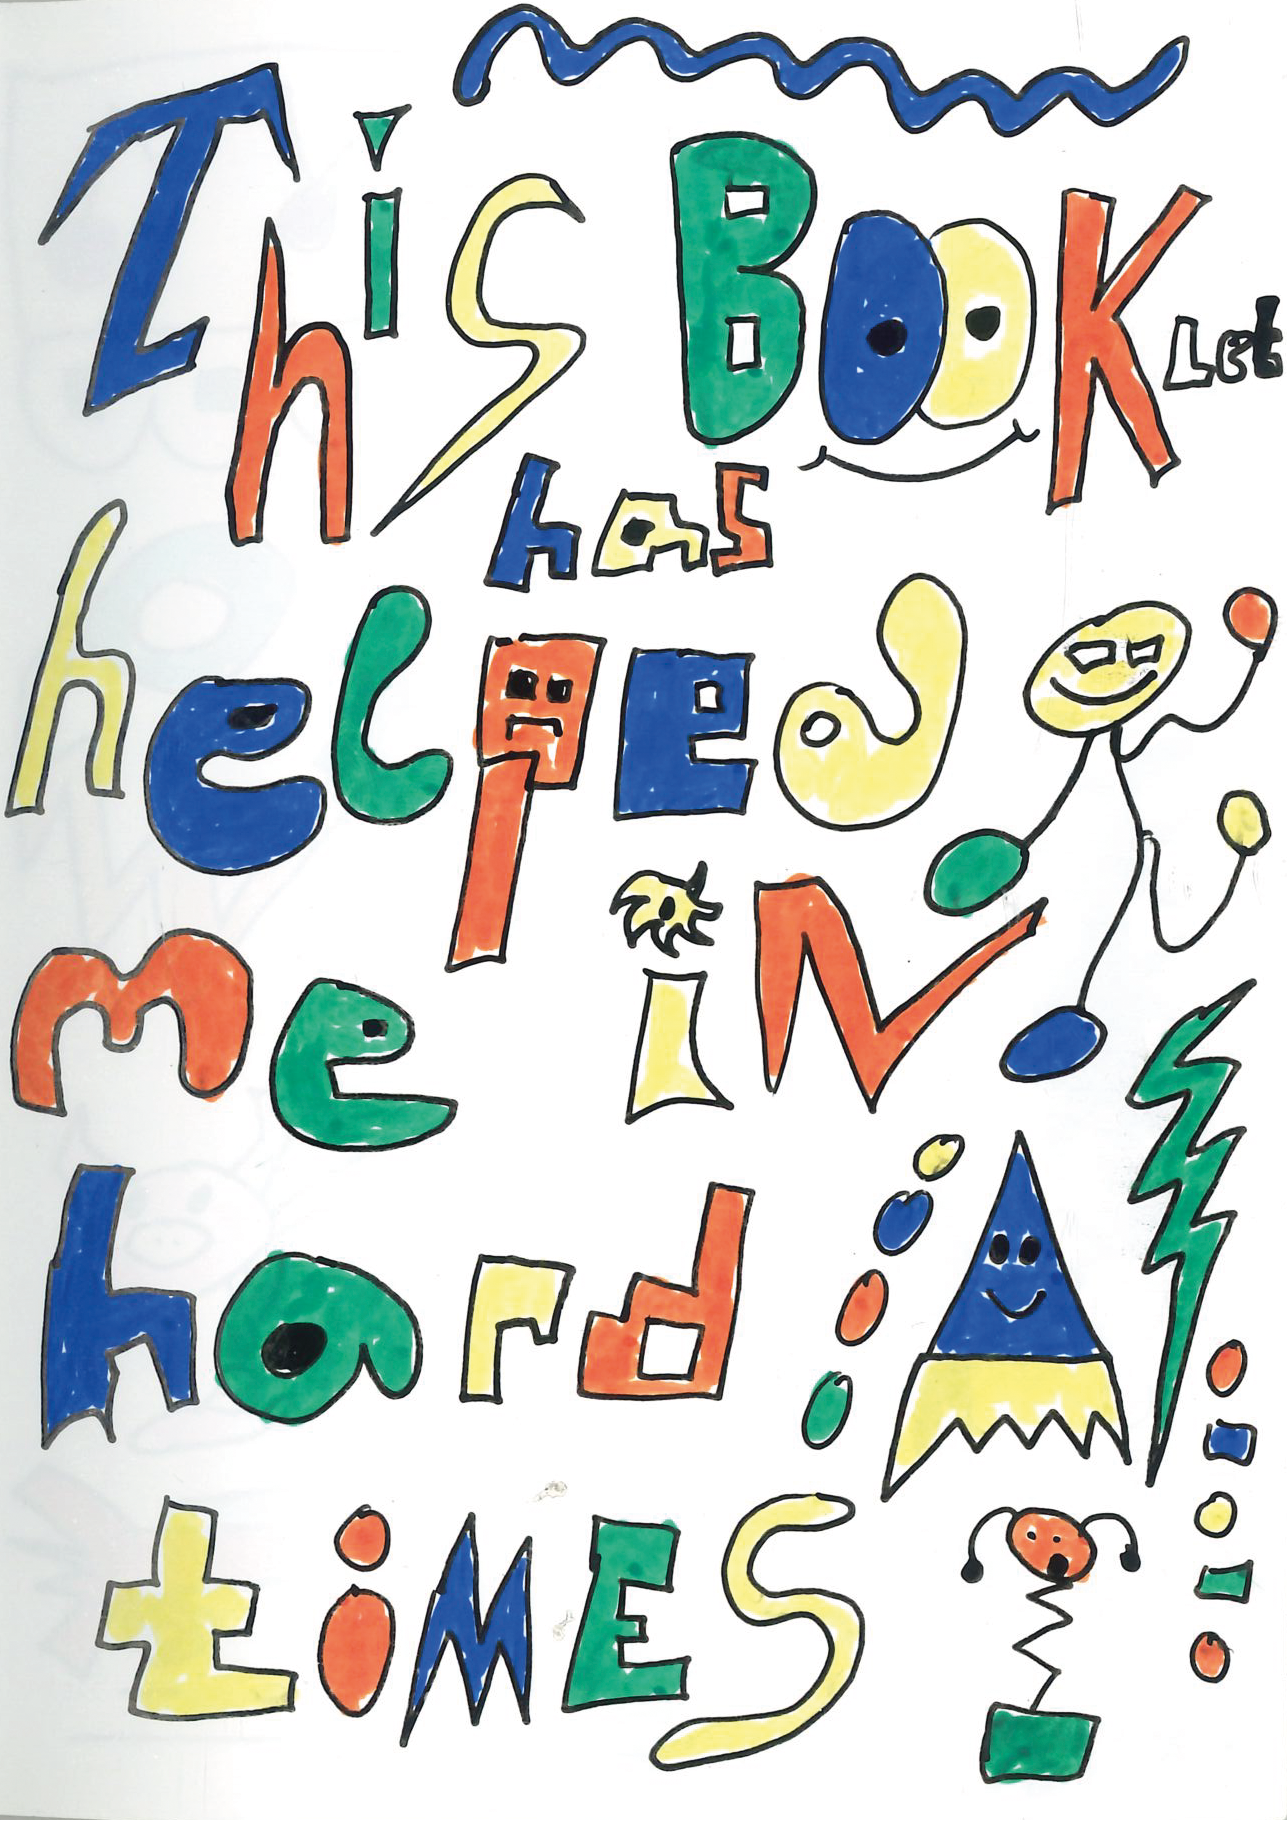 This BOOKLet
has
helped
me iN
hard
tiMES